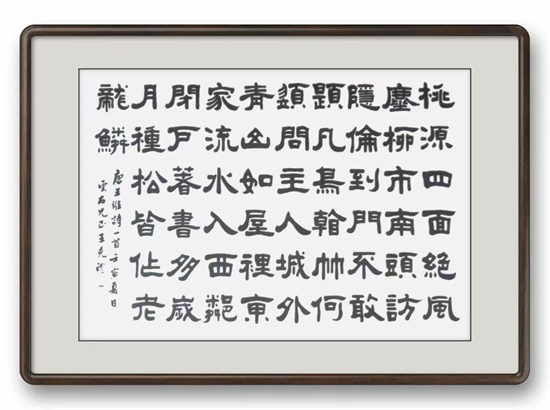 桃源四面絕風
塵柳市南頭訪
隱倫到門不敢
題凡鳥看竹何
須問主人城外
青山如屋裡東
家流水入西鄰
閉戶著書多歲
月種松皆作老
龍鱗
唐王維詩一首壬寅夏日